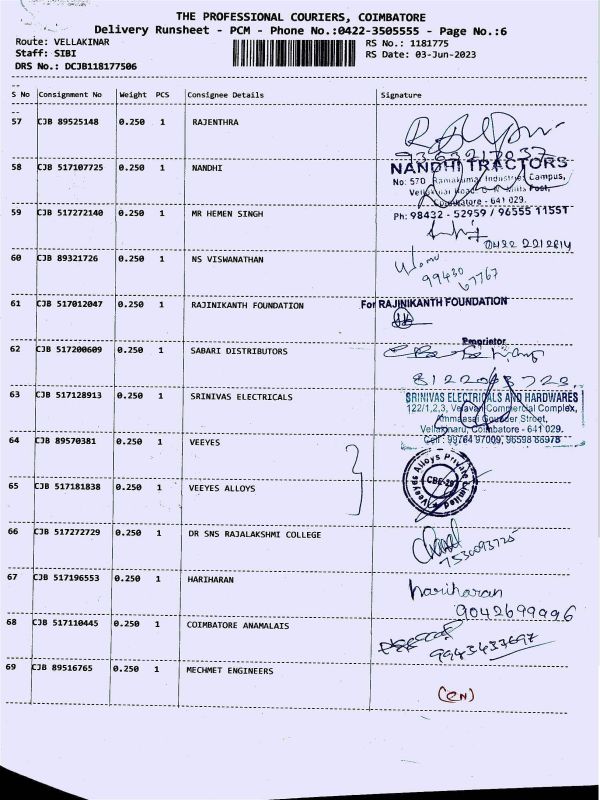 THE PROFESSIONAL COURIERS, COIMBATORE
Delivery Runsheet - PCM - Phone No.:0422-3505555 - Page No.:6
Route: VELLAKINAR
Staff: SIBI
DRS No.: DCJB118177506
RS No.: 1181775
RS Date: 03-Jun-2023
S No Consignment No Weight PCS Consignee Details Signature
57 CJB 89525148 0.250 1 RAJENTHRA
58 CJB 517107725 0.250 1 NANDHI
NANDHI TRACTORS
No: 57D Ramakumar Industries Campus,
Coimbatore - 641 029.
Ph: 98432 - 52959 / 96555 11551
59 CJB 517272140 0.250 1 MR HEMEN SINGH
0422 2212614
60 CJB 89321726 0.250 1 NS VISWANATHAN
99430
67767
61 CJB 517012047 0.250 1 RAJINIKANTH FOUNDATION
For RAJINIKANTH FOUNDATION
Proprietor
62 CJB 517200609 0.250 1 SABARI DISTRIBUTORS
63 CJB 517128913 0.250 1 SRINIVAS ELECTRICALS
SRINIVAS ELECTRICALS AND HARDWARES
122/1,2,3, Velavan Commercial Complex,
Ammaasai Gounder Street,
Vellakinaru, Coimbatore - 641 029.
Cell : 99764 97009, 96598 66978
64 CJB 89570381 0.250 1 VEEYES
65 CJB 517181838 0.250 1 VEEYES ALLOYS
Veeyes Alloys Private Limited
CBE-29
66 CJB 517272729 0.250 1 DR SNS RAJALAKSHMI COLLEGE
7530093725
67 CJB 517196553 0.250 1 HARIHARAN
hariharan
9042699996
68 CJB 517110445 0.250 1 COIMBATORE ANAMALAIS
9943433697
69 CJB 89516765 0.250 1 MECHMET ENGINEERS
(CN)